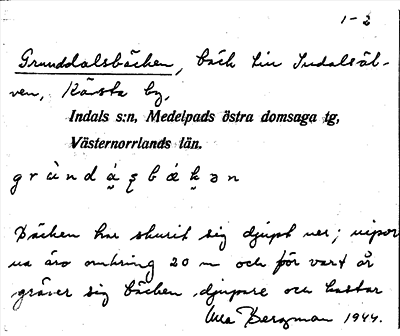 1-2
Grunddalsbäcken, bäck t. Indalsäl-
ven, Kärsta by,
Indals s:n, Medelpads östra domsaga tg,
Västernorrlands län.
g r ù n d á̤ ș b ǽ k̯ ə n
Bäcken har skurit sig djupt ner; nipor
na äro omkring 20 m och för vart år
gräver sig bäcken djupare och kastar
Bergman 1944.